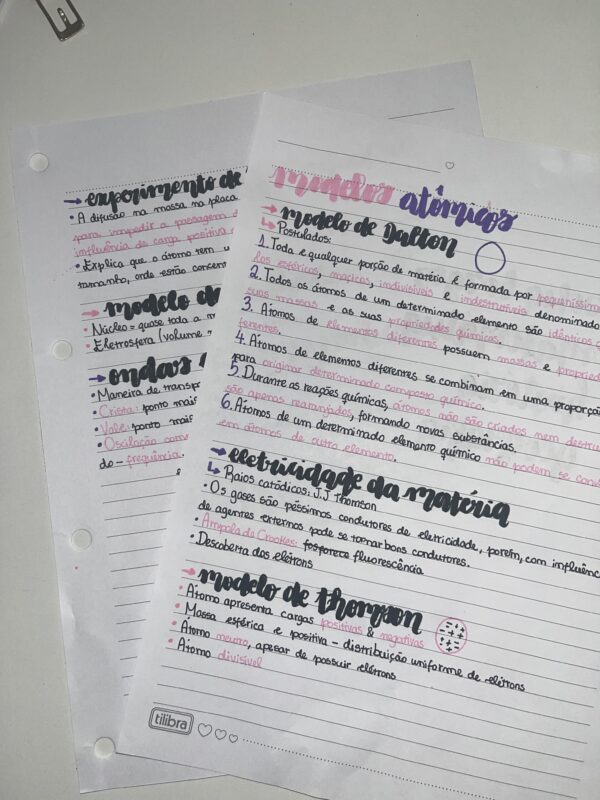 experimento de
• A difusão na massa na placa
para, impedir a passagem
influência de carga positiva
• Explica que o átomo tem
tamanho, onde estão concent
modelo d
• Núcleo = quase toda a m
• Eletrosfera (volume
ondas
• Maneira de transp
• Crista: ponto mais
• Vale: ponto mais
• Oscilação com
do - frequência.
modelos atômicos
→ modelo de Dalton
↳ Postulados:
1. Toda e qualquer porção de matéria é formada por pequeníssim
las esféricas, maciças, indivisíveis e indestrutíveis denominado
2. Todos os átomos de um determinado elemento são idênticos q
suas massas e as suas propriedades químicas.
3. Átomos de elementos diferentes possuem massas e propried
ferentes.
4. Átomos de elementos diferentes se combinam em uma proporção
para originar determinado composto químico.
5. Durante as reações químicas, átomos não são criados nem destru
são apenas rearranjados, formando novas substâncias.
6. Átomos de um determinado elemento químico não podem se conv
em átomos de outro elemento.
→ eletricidade da matéria
↳ Raios catódicos: J.J Thomson
• Os gases são péssimos condutores de eletricidade,, porém, com influênc
de agentes externos pode se tornar bons condutores.
• Ampola de Crookes: fosforece fluorescência
• Descoberta dos elétrons
→ modelo de thomson
• Átomo apresenta cargas positivas & negativas
• Massa esférica e positiva - distribuição uniforme de elétrons
• Átomo neutro, apesar de possuir elétrons
• Átomo divisível
tilibra